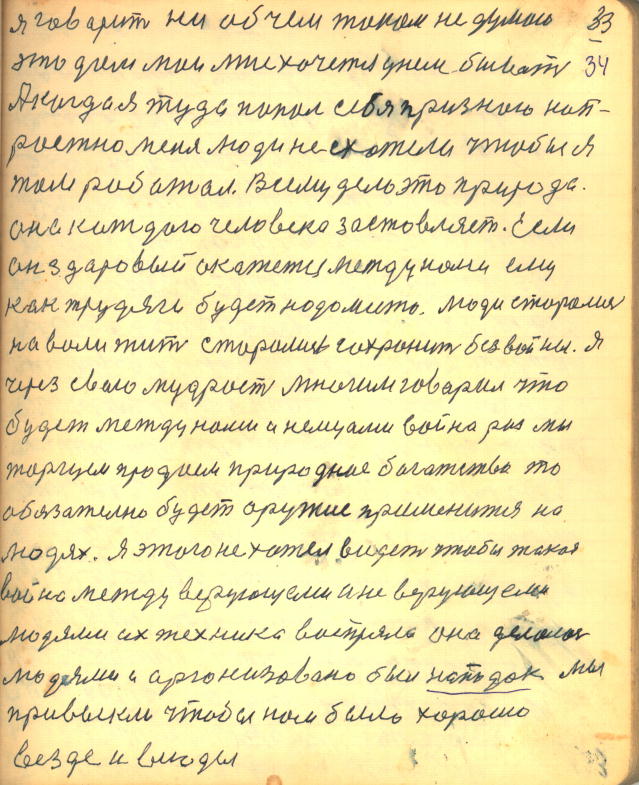 я говарит ни об чем таком не думаю 33
это дом мои мне хочется унем бывать 34
А когда я туда попал себя признаю нап-
растно меня люди не схотели чтобы я
там работал. Всему дело это природа.
она каждого человека заставляет. Если
он здаровый окажетц между нами ему
как трудяги будет надомить. Люди старалися
на воли жит старалися сохранит без войны. Я
через свою мудрост многим говарил что
будет между нами и немцами война раз мы
торгуем продаем природное богатство то
обязателно будет оружие применится на
людях. Я этого не хател видет чтобы такая
война между верующеми и не верующеми
людями их техника востряла она делалася
людями и арганизовано был нападок мы
привыкли чтобы нам было хорошо
везде и всюды